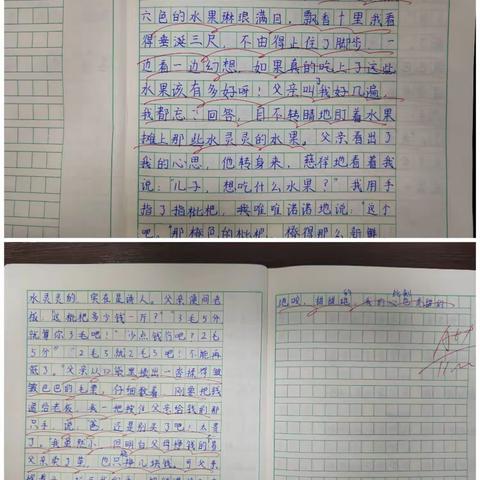 六色的水果琳琅满目，飘香十里我看
得垂涎三尺，不由得止住了脚步，一
边看一边幻想，如果真的吃上了这些
水果该有多好呀！父亲叫我好几遍，
我都忘了回答，目不转睛地盯着水果
摊上那些水灵灵的水果。父亲看出了
我的心思，他转身来，慈祥地看着我
说："儿子，想吃什么水果？"我用手
指了指枇杷，我唯唯诺诺地说："这个
吧。"那橙色的枇杷，橙得那么新鲜
水灵灵的，实在是诱人。父亲便问老
板："这枇杷多少钱一斤？""3毛5分
就算你3毛吧！""少点钱当吧？2毛
5分""2毛3就2毛3吧！不能再
低了。"父亲从口袋里摸出一沓揉得皱
皱巴巴的毛票，仔细数着，刚要把钱
递给老板，我一把按住父亲给钱的那
只手，说"爸，还是别买了吧！太贵
了。"我虽然小，但明白父母挣钱的
父亲卖了草，也只挣几块钱。可父亲